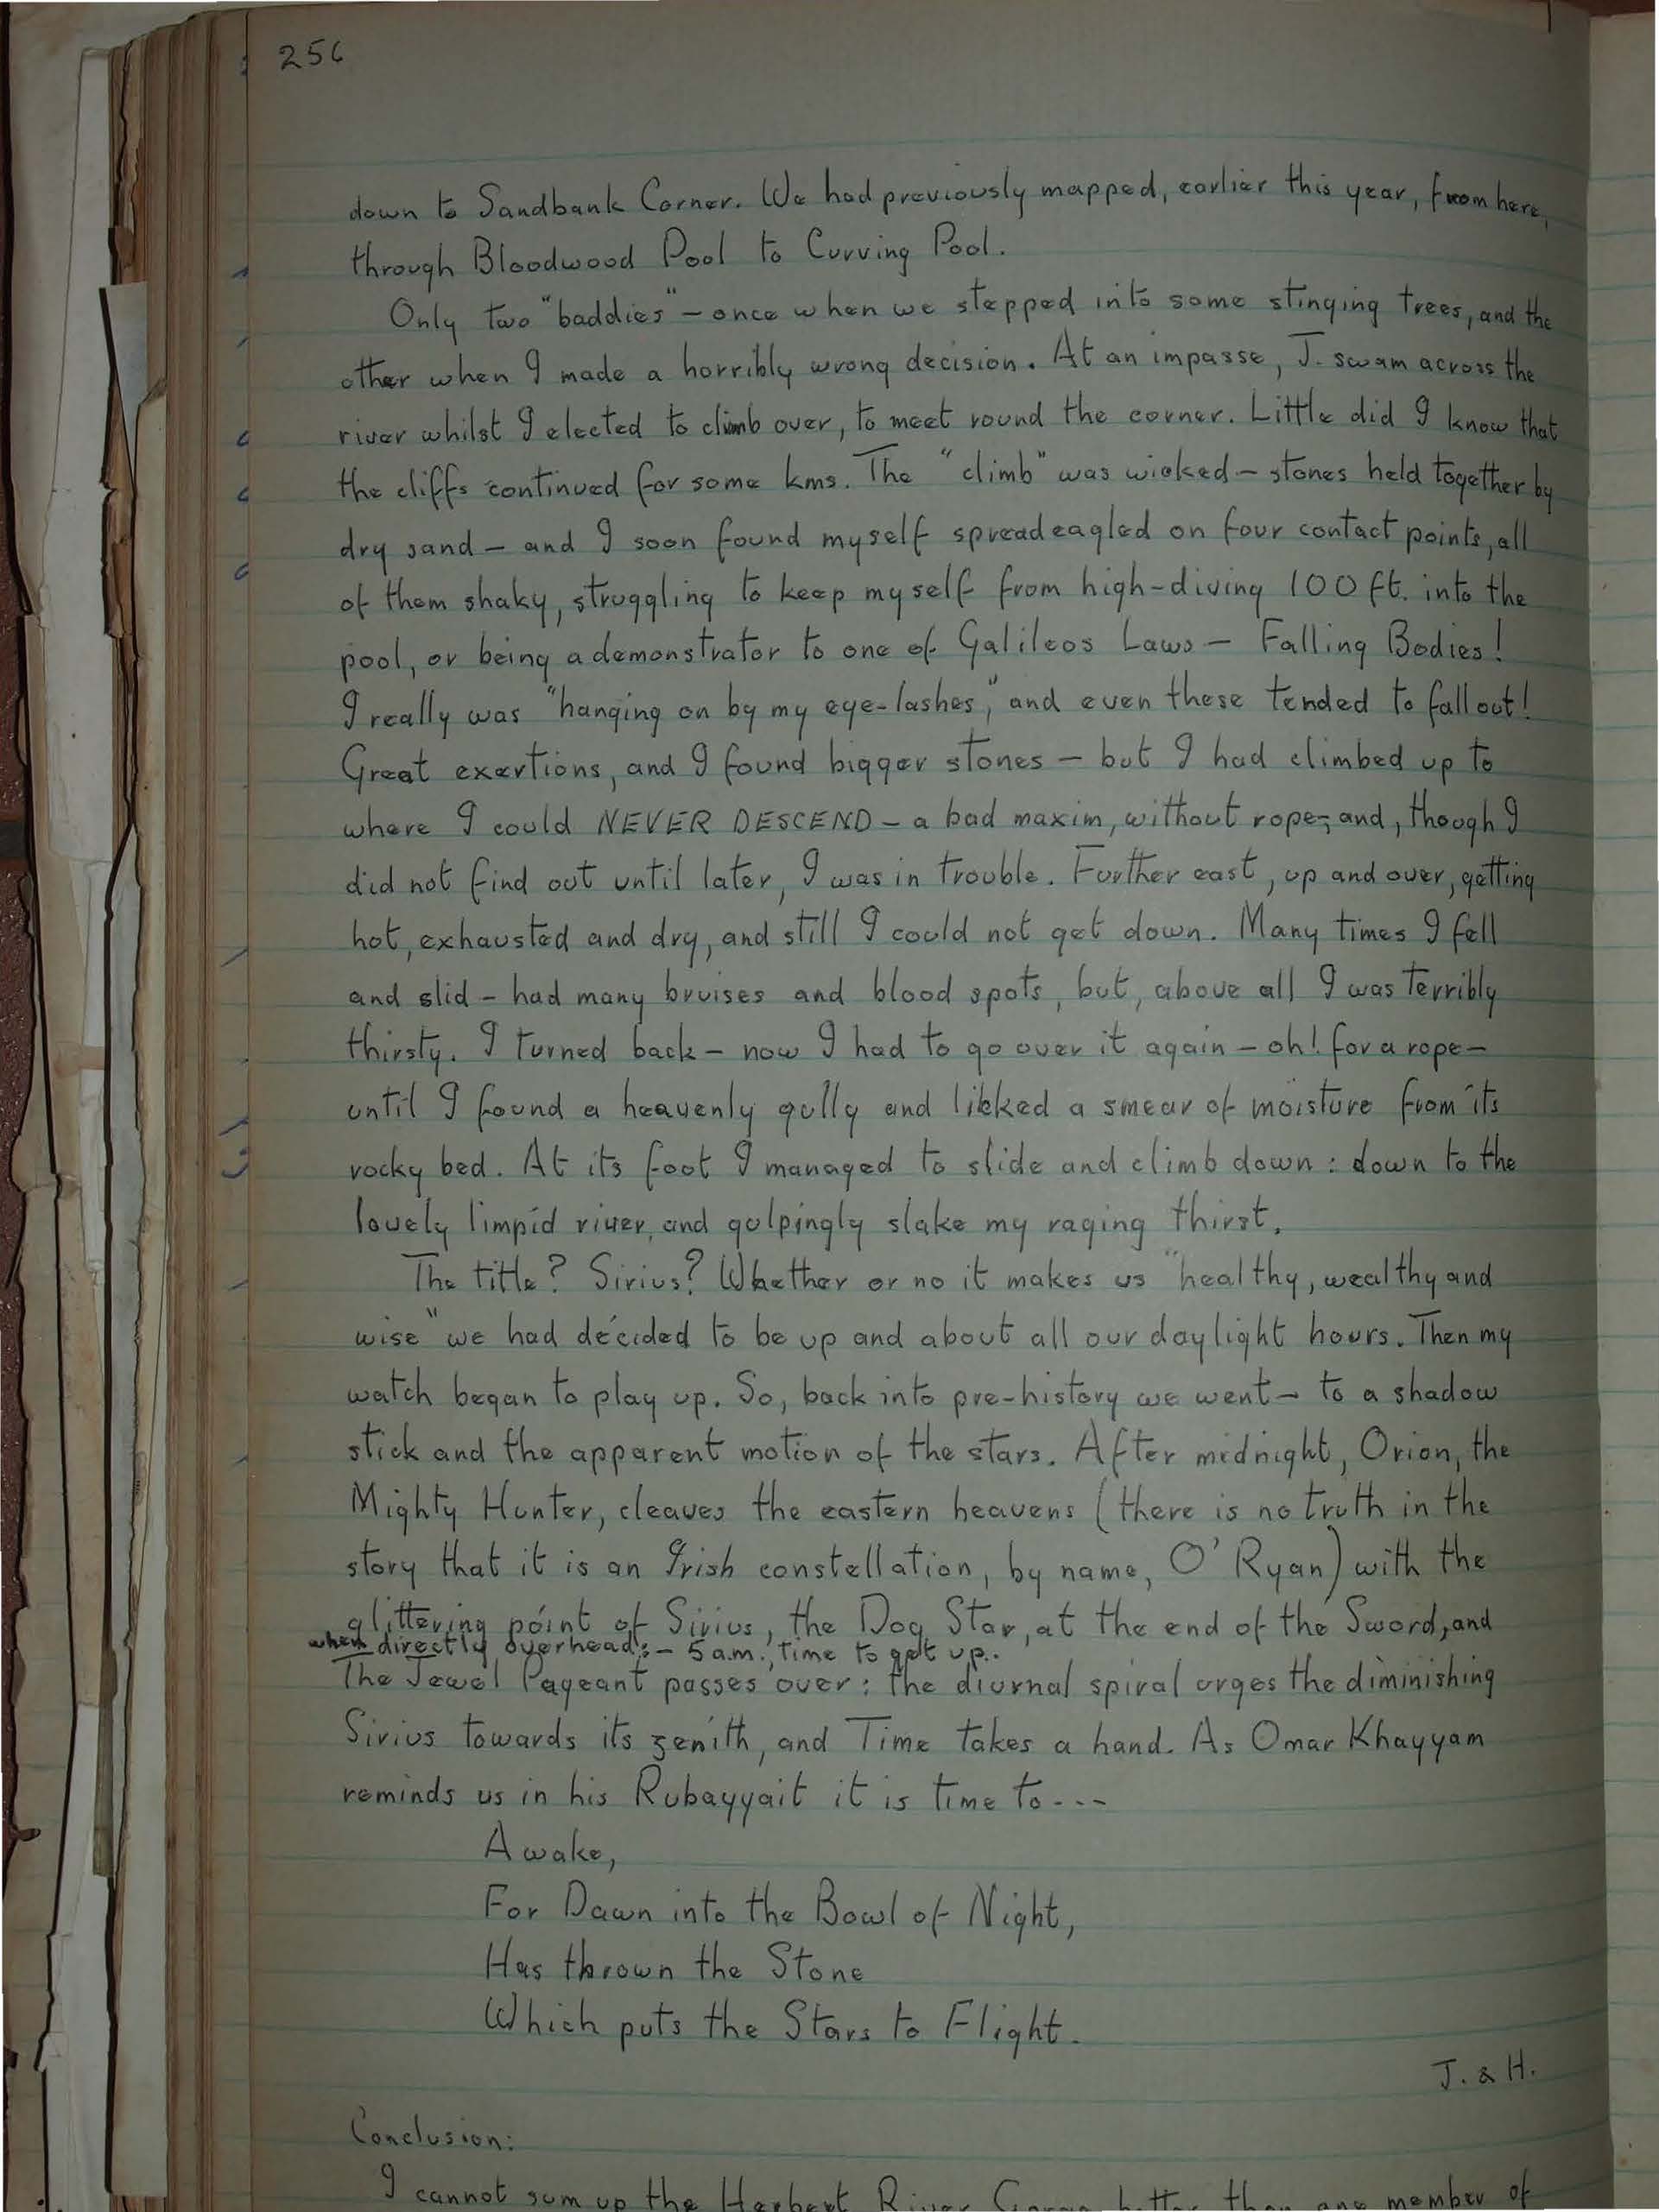 256
down to Sandbank Corner. We had previously mapped, earlier this year, from here,
through Bloodwood Pool to Curving Pool.
Only two "baddies" - once when we stepped into some stinging trees, and the
other when I made a horribly wrong decision. At an impasse, J. swam across the
river whilst I elected to climb over, to meet round the corner. Little did I know that
the cliffs continued for some kms. The "climb" was wicked - stones held together by
dry sand - and I soon found myself spreadeagled on four contact points, all
of them shaky, struggling to keep myself from high-diving 100 ft. into the
pool, or being a demonstrator to one of Galileos Laws - Falling Bodies!
I really was "hanging on by my eye-lashes," and even these tended to fall out!
Great exertions, and I found bigger stones - but I had climbed up to
where I could NEVER DESCEND - a bad maxim, without rope; and, though I
did not find out until later, I was in trouble. Further east, up and over, getting
hot, exhausted and dry, and still I could not get down. Many times I fell
and slid - had many bruises and blood spots, but, above all I was terribly
thirsty. I turned back - now I had to go over it again - oh! for a rope -
until I found a heavenly gully and licked a smear of moisture from its
rocky bed. At its foot I managed to slide and climb down: down to the
lovely limpid river, and gulpingly slake my raging thirst.
The title? Sirius? Whether or no it makes us "healthy, wealthy and
wise" we had decided to be up and about all our daylight hours. Then my
watch began to play up. So, back into pre-history we went - to a shadow
stick and the apparent motion of the stars. After midnight, Orion, the
Mighty Hunter, cleaves the eastern heavens (there is no truth in the
story that it is an Irish constellation, by name, O' Ryan) with the
glittering point of Sirius, the Dog Star, at the end of the Sword, and
when directly overhead:- 5 a.m., time to get up..
The Jewel Pageant passes over: the diurnal spiral urges the diminishing
Sirius towards its zenith, and Time takes a hand. As Omar Khayyam
reminds us in his Rubayyait it is time to---
Awake,
For Dawn into the Bowl of Night,
Has thrown the Stone
Which puts the Stars to Flight.
J. & H.
Conclusion:
I cannot sum up the Herbert River Gorge better than one member of